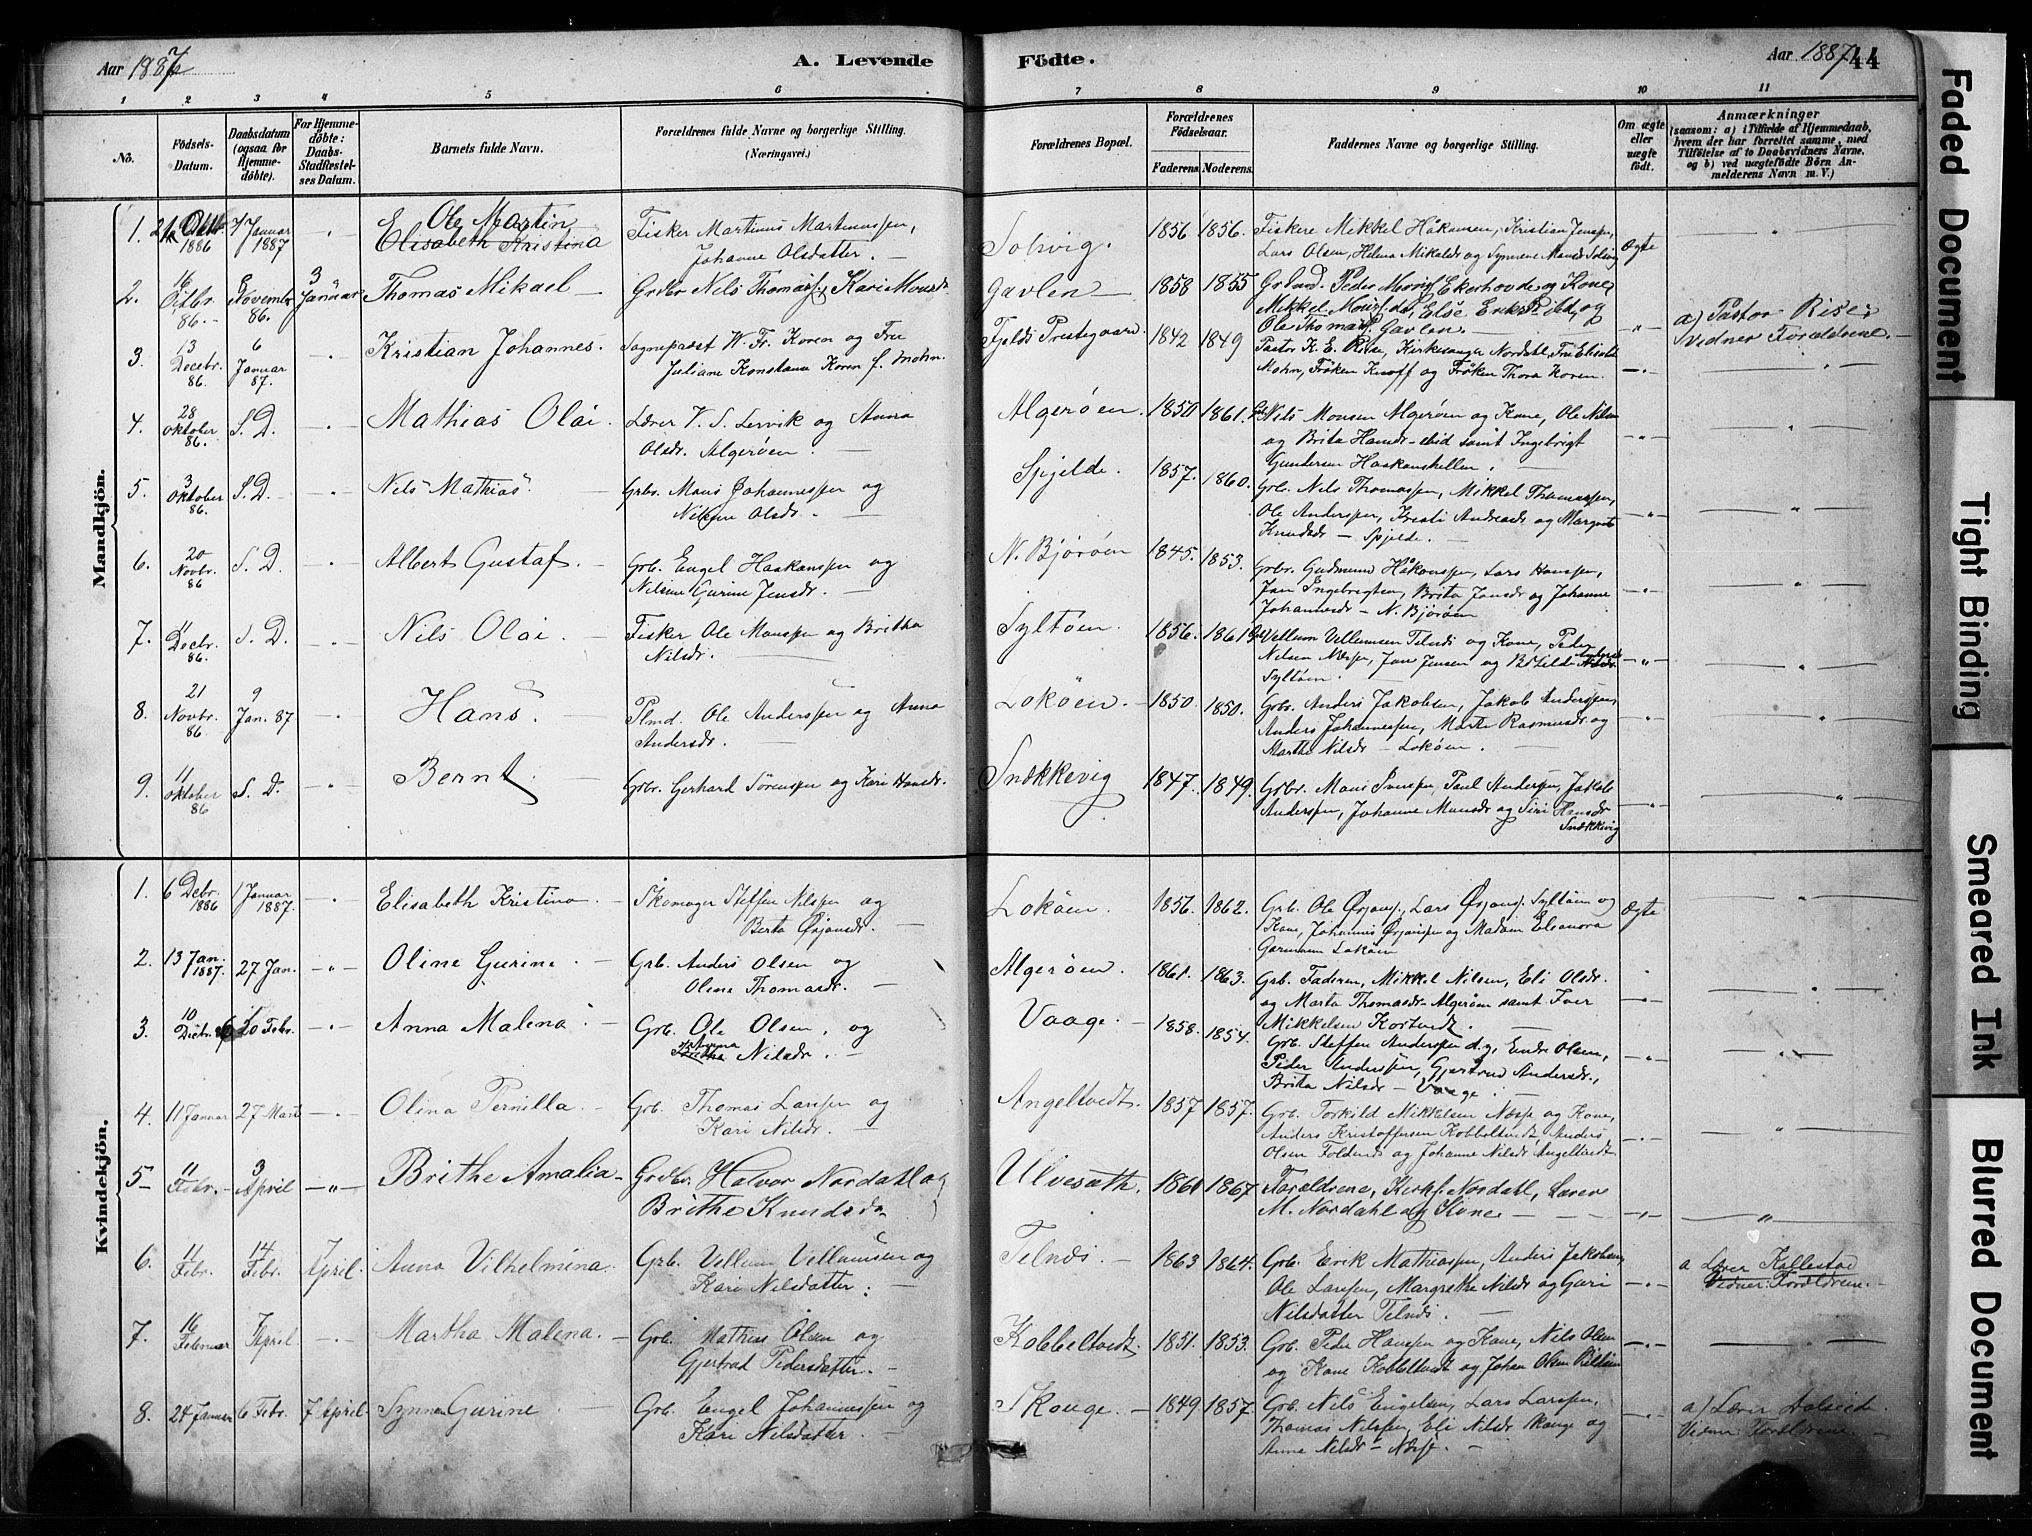 Aar 1887
A. Levende
Födte.
Aar 1887
44
1 2 3 4 5 6 7 8 9 10 11
No.
Födsels-Datum.
Daabsdatum (ogsaa for Hjemme-döbte).
For Hjemme-döbte: Daabs-Stadfæstel-ses Datum.
Barnets fulde Navn.
Forældrenes fulde Navne og borgerlige Stilling. (Næringsvei.)
Forældrenes Bopæl.
Forældrenes Födselsaar.
Faderens Moderens
Faddernes Navne og borgerlige Stilling.
Om ægte eller uægte födt.
Anmærkninger
(saasom: a) i Tilfælde af Hjemmedaab, hvem der har forrettet samme, med Tilföielse af to Daabsvidners Navne, og b) ved uægtefödte Börn An-melderens Navn m. V.)
Mandkjön.
1. 1886 1/7 Januar 1887 Ole Martin
Elisabeth Kristina
Fisker Martinus Martinussen,
Johanne Olsdatter.
Solvig. 1856 1856.
Fiskere Mikkel Håkansen, Kristian Jensen,
Lars Olsen, Helena Mikalsdr og Synneve Monsdr Solvig
Ægte
2. 16 Octbr. 86. November 86. 3 Januar Thomas Mikael
Grdbr Nils Thomass. Kari Monsdr
Gavlen 1858 1855
Peder Ekerhovde og Kone
Mikkel
Ole Thomass. Gavlen
a) Pastor Rise;
Vidner Foreldrene.
3. 13 Decebr. 86. 6 Januar 87. Kristian Johannes.
Sognepræst W. Fr. Koren og Fru
Juliane Konstance Koren f. Mohn.
Fjelds Prestegaard 1842 1849
Pastor K. E. Rise, Kirkesanger Nordahl, Fru Elisabeth
Mohn, Frøken Knoff og Frøken Thora Koren.
4. 28 Oktober 86. S. D. Mathias Olai.
Lærer V. S. Lervik og Anna
Olsdr. Algerøen.
Algerøen. 1850 1861.
Nils Monsen Algerøen og Kone, Ole Nilsen
og Brita Hansdr ibid samt Ingebrigt
Gundersen Haakanshellen.
5. 3 Oktober 86. S. D. Nils Mathias.
Grbr. Mons Johannessen og
Nilsine Olsdr.
Spjelde. 1857. 1860.
Grb. Nils Thomassen, Mikkel Thomassen,
Ole Anderssen, Kristi Andreasdr og Margreta
Knudsdr Spjelde.
6. 20 Novbr. 86 S. D. Albert Gustaf.
Grb. Engel Haakanssen og
Nilsine Gurine Jensdr.
N. Bjørøen 1845. 1853.
Grbr. Gudmund Håkonssen, Lars Hanssen,
Jan Ingebregtsen, Brita Jansdr og Johanne
Johannesdr N. Bjørøen
7. 11 Decbr. 86. S. D. Nils Olai.
Fisker Ole Monssen og Britha
Nilsdr.
Syltøen. 1856. 1861
Vellum Vellumsen Telnes og Kone, Peder
Nilsen Næsse, Jan Jensen og Botilde Andersdr
Syltøen.
8. 21 Novbr. 86 9 Jan. 87 Hans.
Plmd. Ole Anderssen og Anna
Andersdr.
Lokøen. 1850. 1850.
Grbr. Anders Jakobsen, Jakob Anderssen,
Anders Johannessen, Marthe Rasmusdr og
Marthe Nilsdr Lokøen.
9. 11 Oktober 86 S. D. Bernt.
Grbr. Gerhard Sørenssen og Kari Hansdr.
Snekkevig 1847. 1849.
Grbr. Mons Iverssen, Paul Anderssen, Jakob
Anderssen, Johanne Monsdr og Siri Hansdr
Snekkevig
Kvindekjön.
1. 6 Debr. 1886 1 Januar 1887. Elisabeth Kristine
Skomager Steffen Nilssen og
Berta Ørjansdr.
Lokøen. 1856. 1862.
Grb. Ole Ørjans., Lars Ørjans. Syltøen og
Kone, Johannes Ørjanssen og Madam Eleanora
Garmann Lokøen
Ægte
2. 13 Jan. 1887. 27 Jan. Oline Gurine.
Grb. Anders Olsen og
Oline Thomasdr.
Algerøen. 1861. 1863.
Grb. Faderen, Mikkel Nilsen, Eli Olsdr.
og Marta Thomasdr Algerøen samt Iver
Mikkelsen Kortvedt.
3. 10 Decbr. 20 Febr. Anna Malena
Grb. Ole Olsen, og
Nilsdr.
Vaage. 1858. 1854.
Grb. Steffen Anderssen d.y., Endre Olsen,
Peder Anderssen, Gjertrud Andersdr.,
Brita Nilsdr Vaage.
4. 11 Januar 27 Marts Olina Pernilla.
Grb. Thomas Larssen og
Kari Nilsdr.
Angeltvedt. 1857 1857.
Grb. Torkild Mikkelsen Næsse og Kone,
Anders Kristoffersen Kobbeltvedt, Anders
Olsen Foldnes og Johanne Nilsdr Angeltvedt.
5 11 Febr. 3 April Brithe Amalia
Grdbr. Halvor Nordahl og
Brithe Knudsdr
Ulvesæth. 1860 1867.
Forældrene, Kirks. Nordahl, Lærer
M. Nordahl og Kone
6. 11 Febr. 14 Febr. 7 April. Anna Vilhelmina.
Grb. Vellum Vellumsen og
Kari Nilsdatter.
Telnes. 1863 1864.
Grb. Erik Mathiassen, Anders Jakobsen,
Ole Larssen, Margrethe Nilsdr og Guri
Nilsdatter Telnes.
a Lærer Kallestad
Vidner: Foreldrene.
7. 16 Februar April. Martha Malena.
Grb. Mathias Olsen og
Gjertrud Pedersdatter.
Kobbeltvedt. 1851. 1853.
Grb. Peder Hanssen og Kone, Nils Olsen
og Kone Kobbeltvedt og Johan Olsen
8. 24 Januar 6 Febr. 7 April. Synneva Gurine
Grb. Engel Johannessen og
Kari Nilsdatter.
Skauge. 1849 1857.
Grb. Nils Engelsen, Lars Larssen,
Thomas Nilssen, Eli Nilsdr Skauge og
Anne Nilsdr Næsse.
a) Lærer
Vidner Foreldrene
Faded Document
Tight Binding
Smeared Ink
Blurred Document